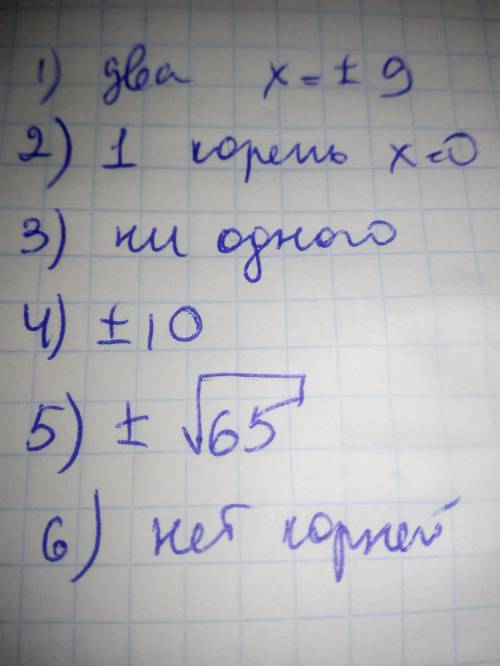 1) два x = ± 9
2) 1 корень x=0
3) ни одного
4) ± 10
5) ± √65
6) нет корней